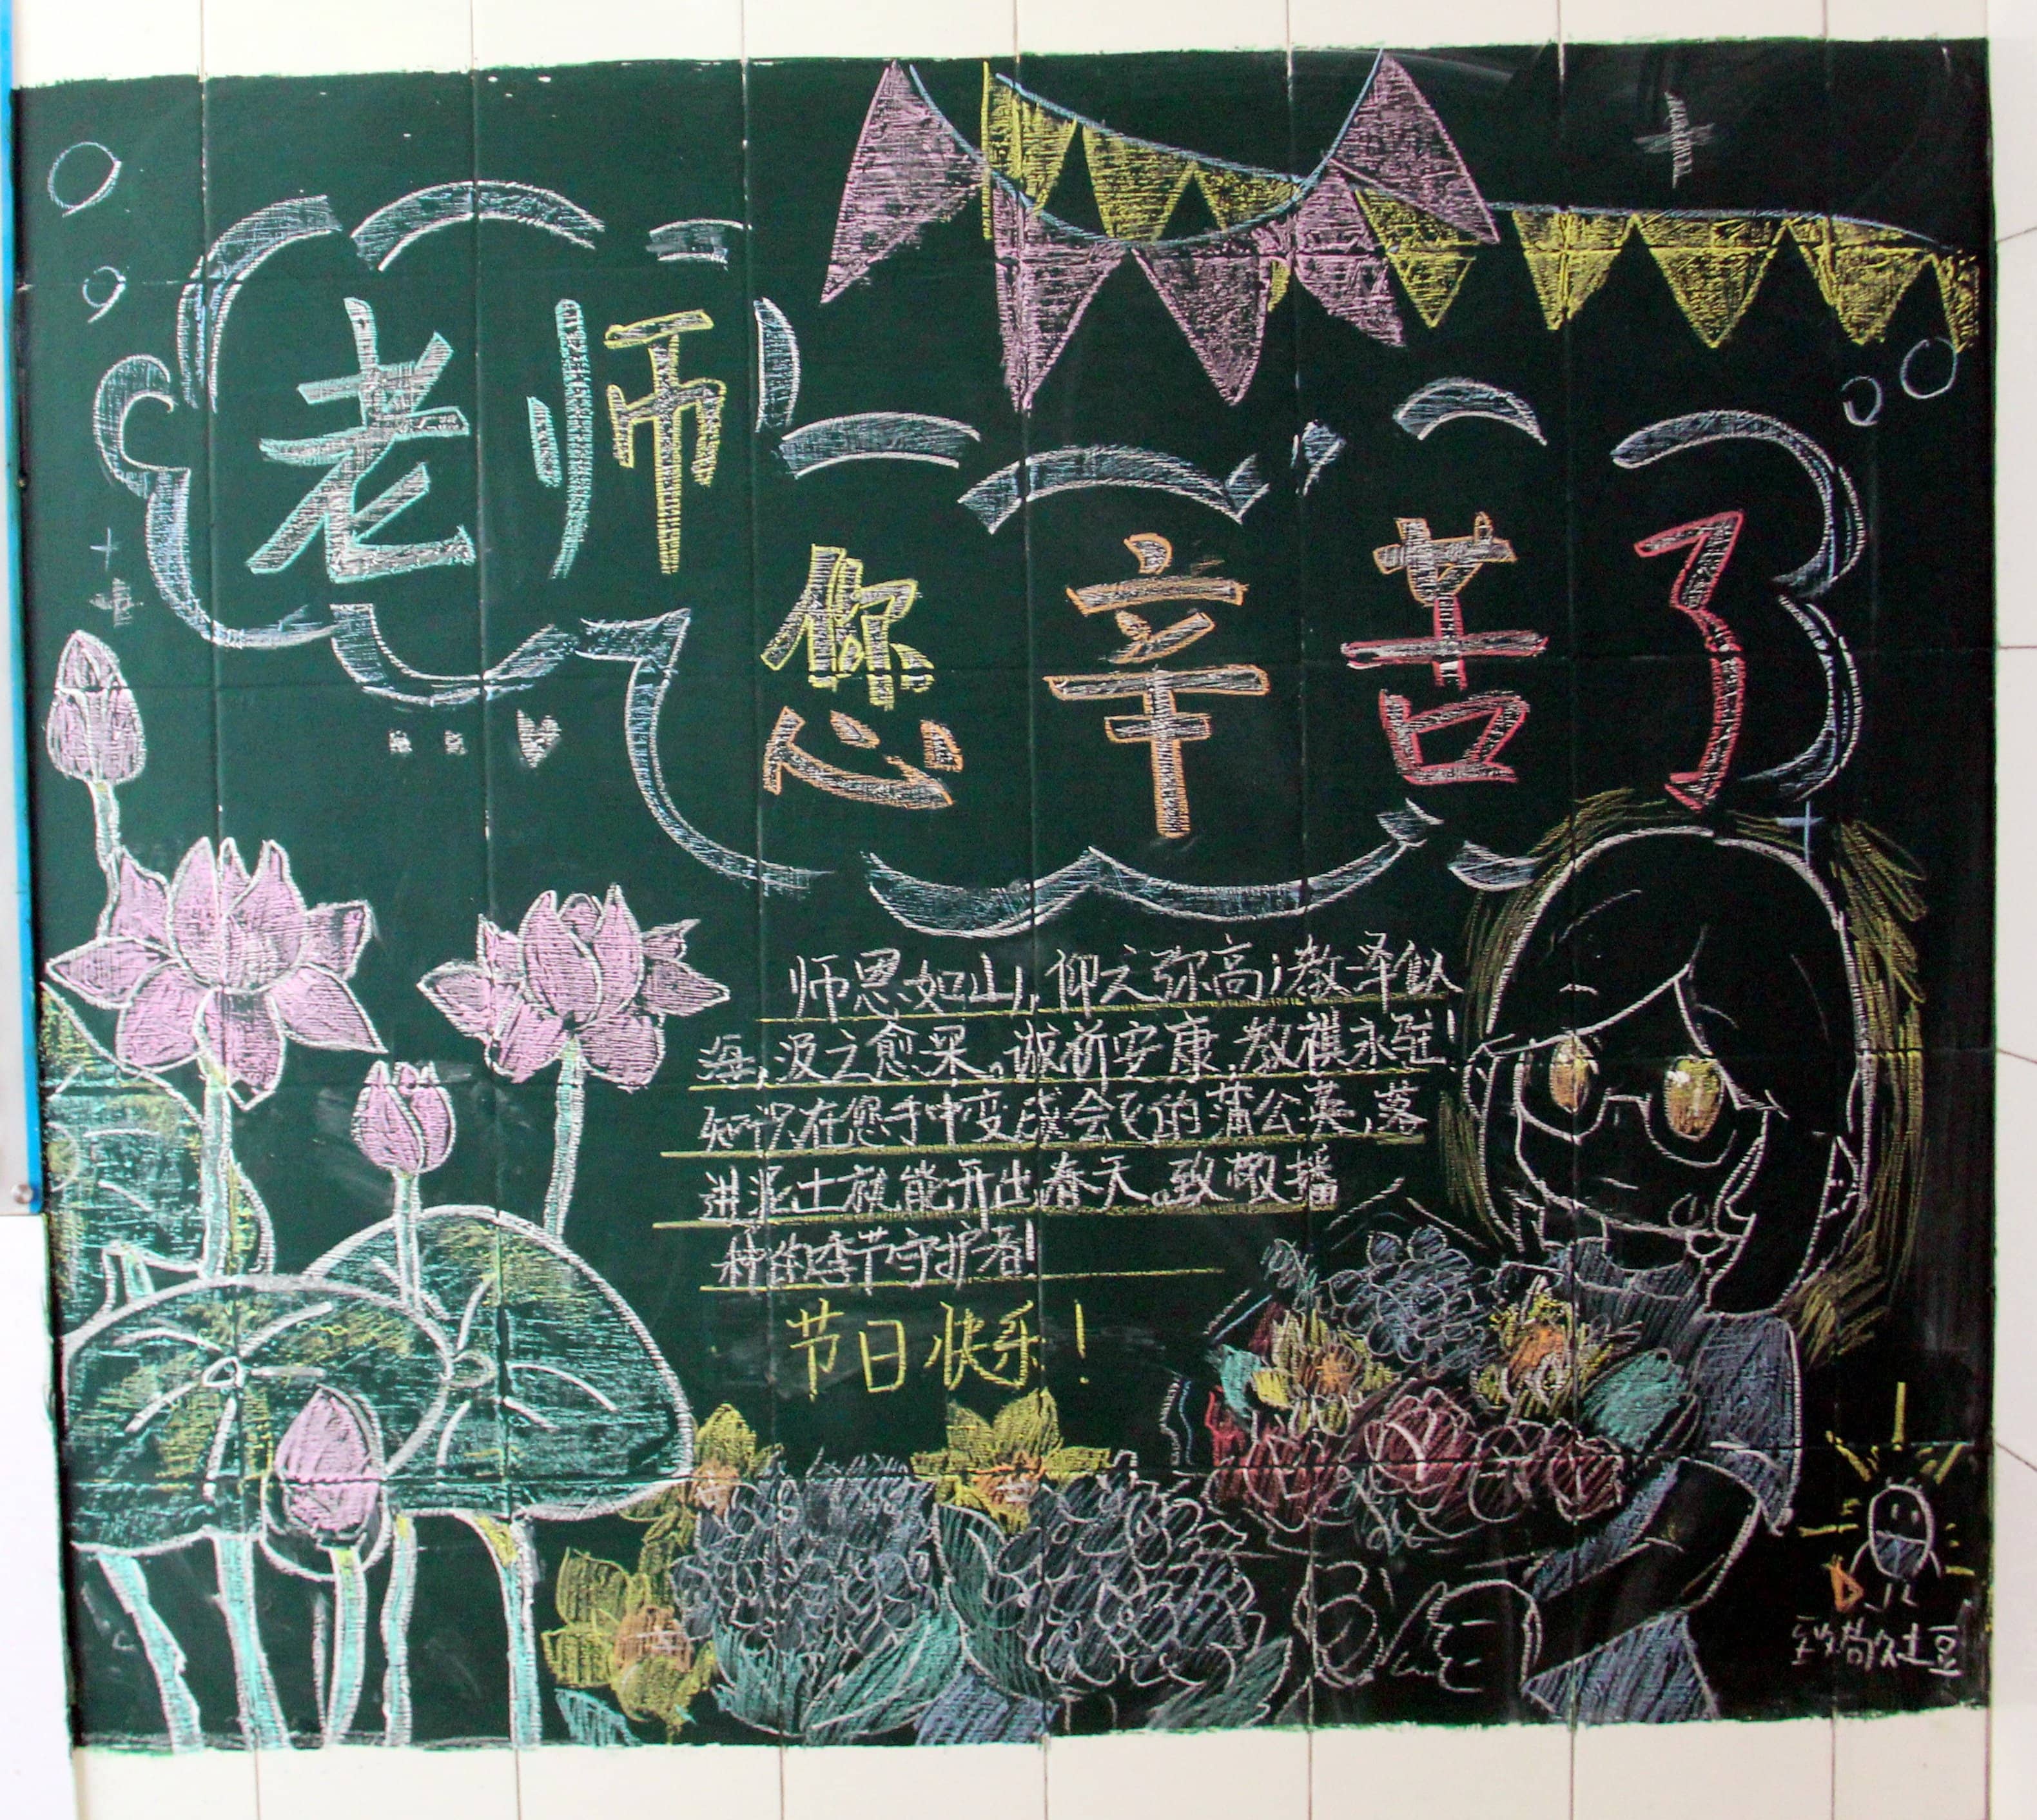 老师
您辛苦了
师恩如山，仰之弥高；教泽似
海，汲之愈深。诚祈安康，教祺永驻！
知识在您手中变成会飞的蒲公英，落
进泥土就能开出春天。致敬播
种的季节守护者！
节日快乐！
致敬土豆